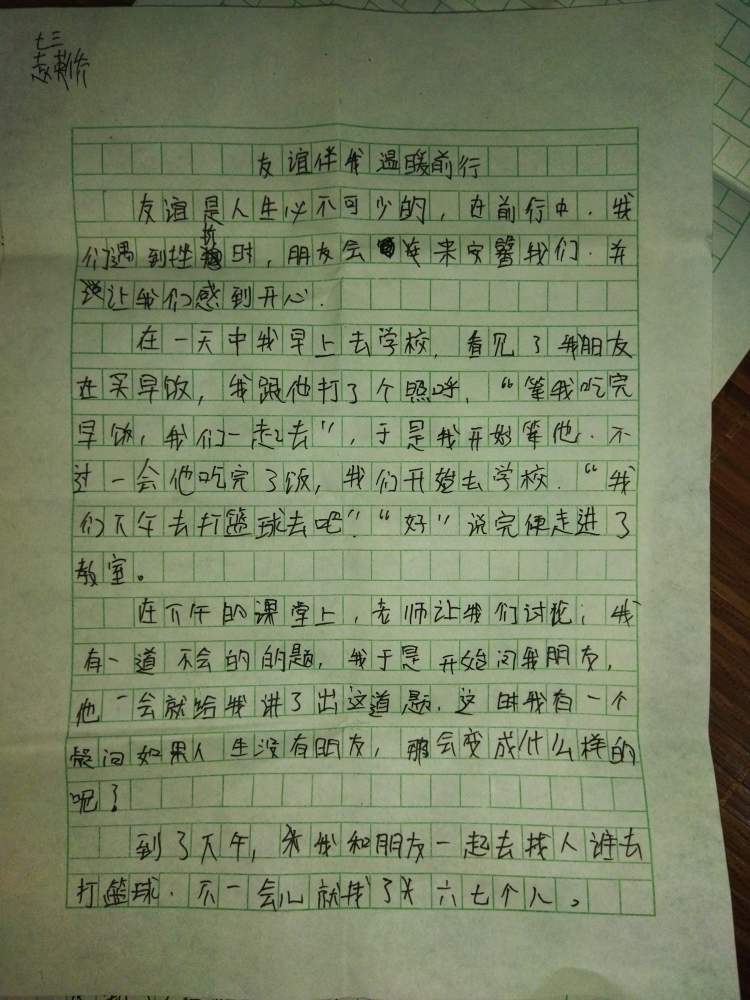 七三
友谊伴我温暖前行
友谊是人生必不可少的，在前行中，我
们遇到挫折时，朋友会来安慰我们．并
让我们感到开心．
在一天中我早上去学校，看见了我朋友
在买早饭，我跟他打了个照呼，“等我吃完
早饭，我们一起去”，于是我开始等他．不
过一会他吃完了饭，我们开始去学校．“我
们下午去打篮球去吧”“好”说完便走进了
教室。
在下午的课堂上，老师让我们讨论，我
有一道不会的的题，我于是开始问我朋友，
他一会就给我讲了出这道题．这时我有一个
疑问如果人生没有朋友，那会变成什么样的
呢？
到了下午，我和朋友一起去找人谁去
打篮球．不一会儿就找了六七个人。